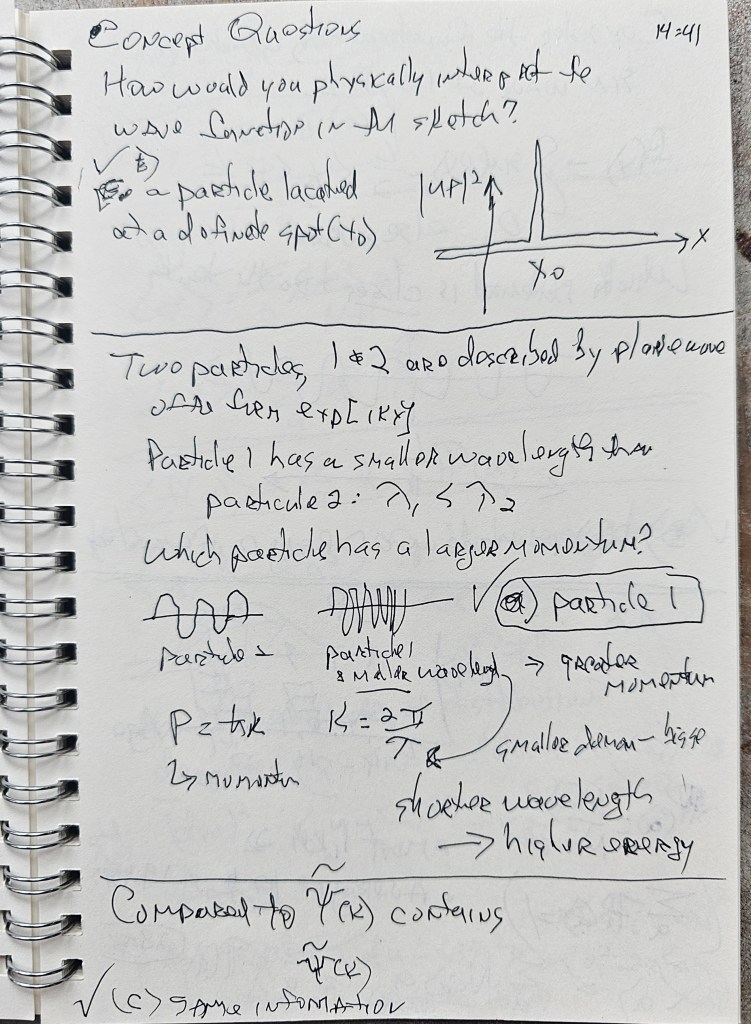 Concept Questions 14:41
How would you physically interpret the
wave function in the sketch?
✓ b) a particle located
at a definate spot (x0)
|ψ|² x
x0
Two particles, 1 & 2 are described by plane wave
of the form exp[ikx]
Particle 1 has a smaller wavelength than
particule 2: λ1 < λ2
Which particle has a larger momentum?
✓ a) particle 1
particle 2 particle 1
smaller wavelength → greater
momentum
P = ħk K = 2π/λ
↳ momentum
smaller denom – bigge
shorter wavelength
→ higher energy
Compared to ψ̃(k) contains
ψ̃(k)
✓ (c) same information